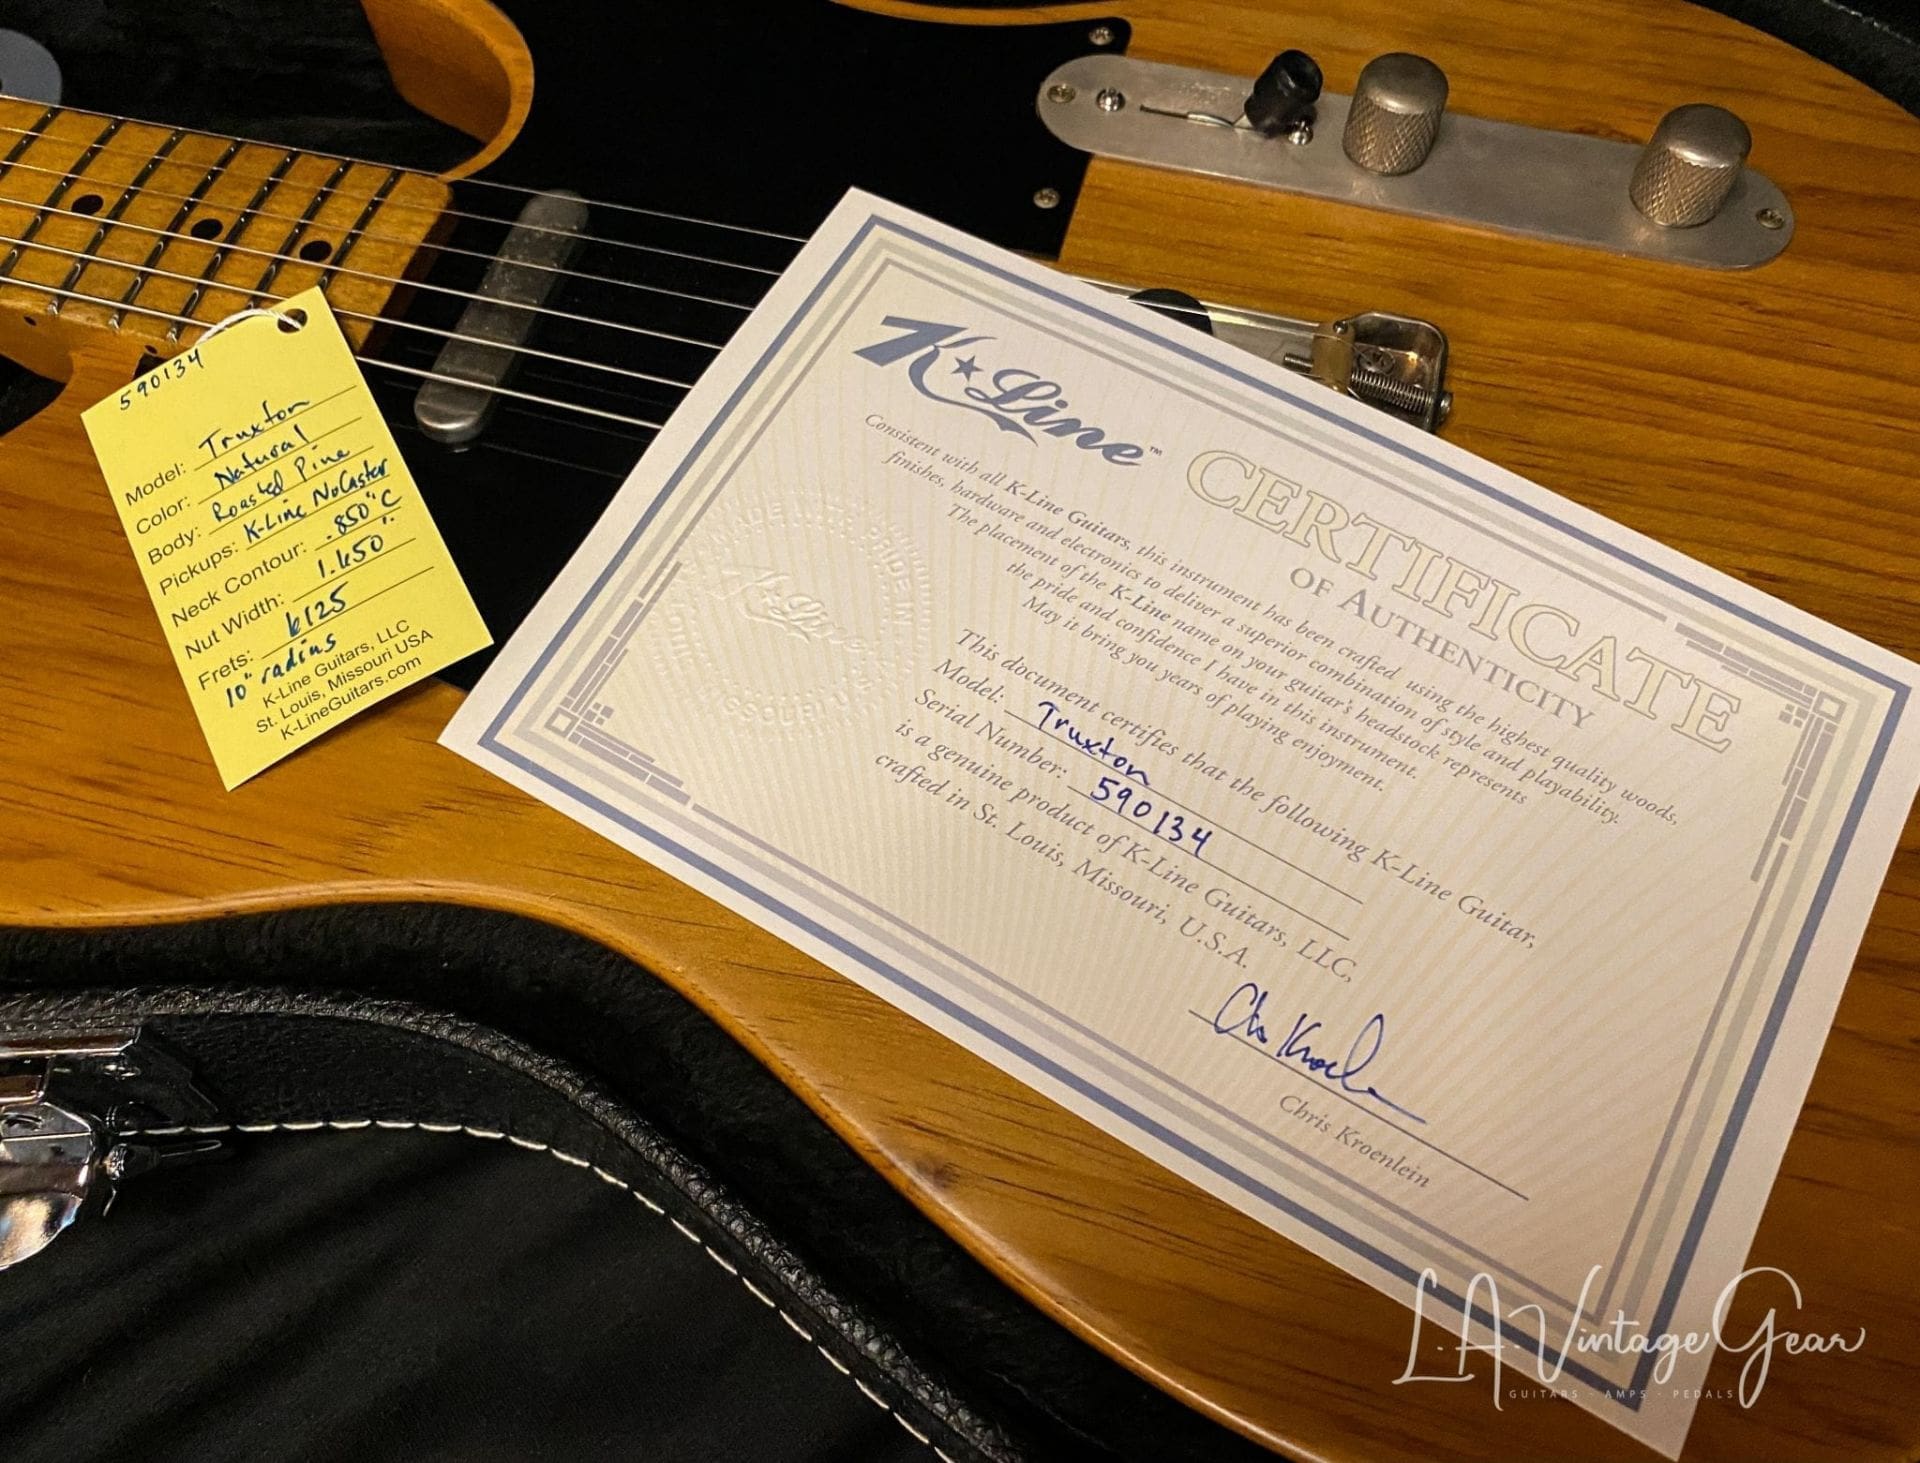 590134
Model: Truxton
Color: Natural
Body: Roasted Pine
Pickups: K-Line NoCaster
Neck Contour: .850" C
Nut Width: 1.650"
Frets: 6125
10" radius
K-Line Guitars, LLC
St. Louis, Missouri USA
K-LineGuitars.com
K★Line™
CERTIFICATE
OF AUTHENTICITY
Consistent with all K-Line Guitars, this instrument has been crafted using the highest quality woods,
finishes, hardware and electronics to deliver a superior combination of style and playability.
The placement of the K-Line name on your guitar's headstock represents
the pride and confidence I have in this instrument.
May it bring you years of playing enjoyment.
This document certifies that the following K-Line Guitar,
Model: Truxton
Serial Number: 590134
is a genuine product of K-Line Guitars, LLC,
crafted in St. Louis, Missouri, U.S.A.
Chris Kroenlein
MADE WITH PRIDE IN
K-Line
L.A. Vintage Gear
GUITARS - AMPS - PEDALS